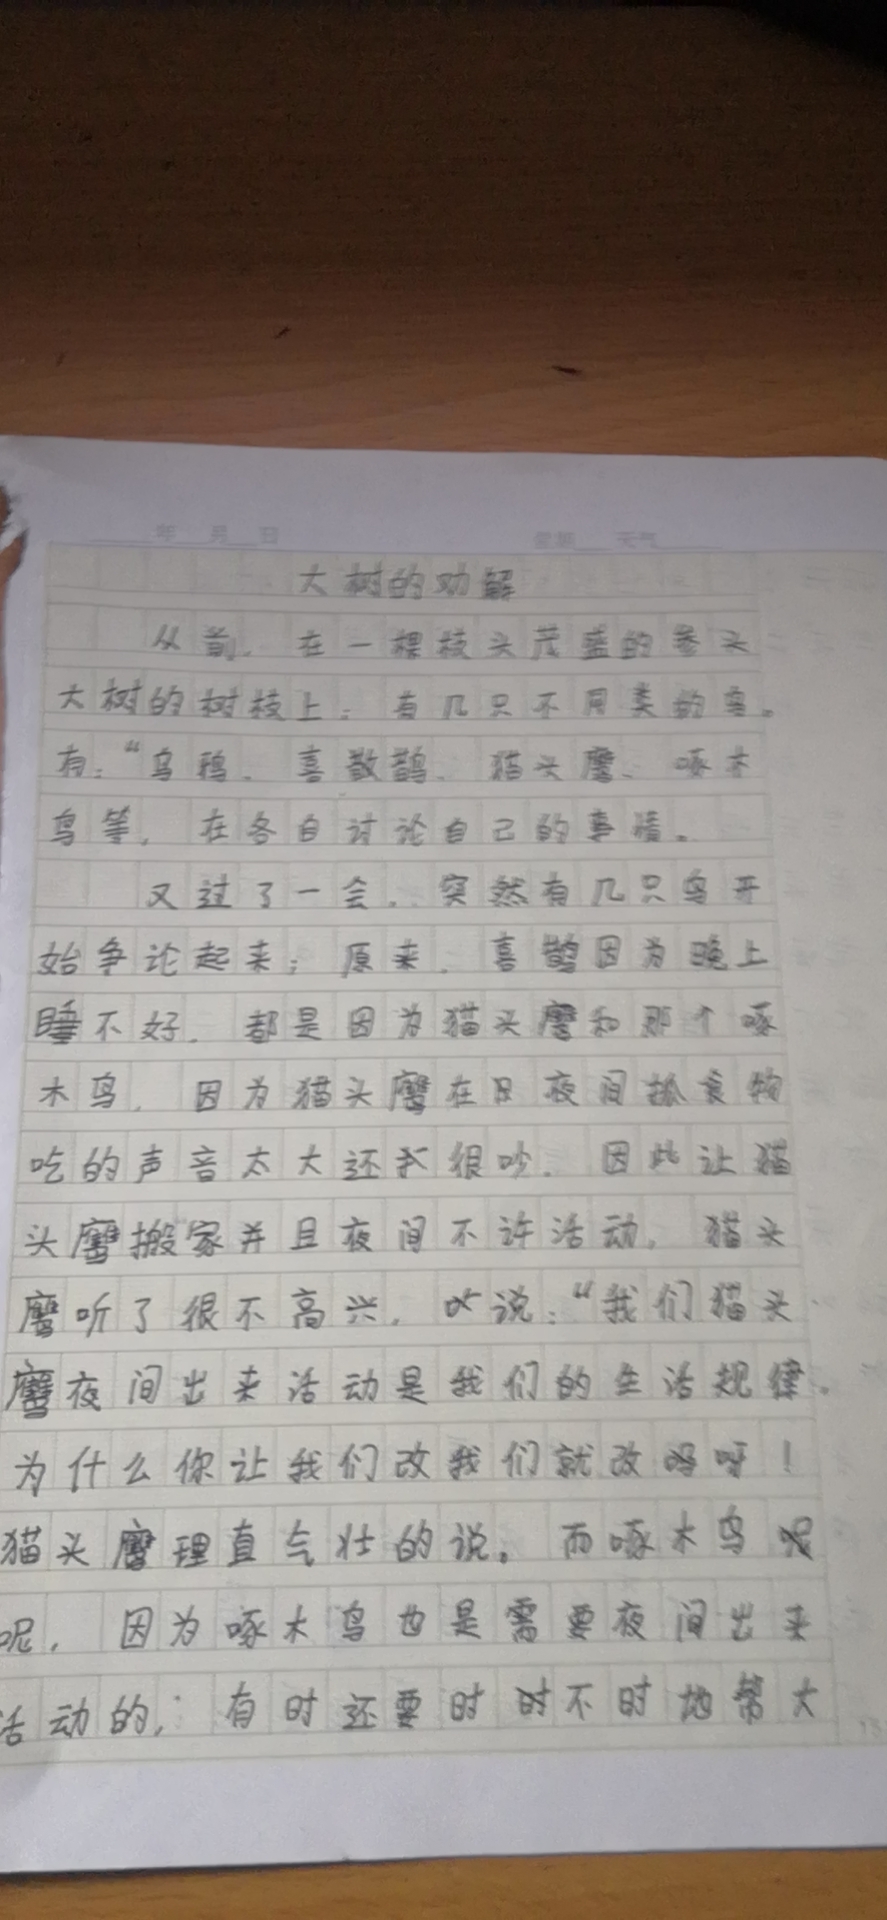 年 月 日 星期 天气
大树的劝解
从前，在一棵枝头茂盛的参头
大树的树枝上，有几只不同类的鸟。
有：“乌鸦、喜鹊、猫头鹰、啄木
鸟等，在各自讨论自己的事情。
又过了一会，突然有几只鸟开
始争论起来；原来，喜鹊因为晚上
睡不好，都是因为猫头鹰和那个啄
木鸟，因为猫头鹰在日夜间抓食物
吃的声音太大还很吵，因此让猫
头鹰搬家并且夜间不许活动，猫头
鹰听了很不高兴，说：“我们猫头
鹰夜间出来活动是我们的生活规律。
为什么你让我们改我们就改呀！
猫头鹰理直气壮的说。而啄木鸟
呢，因为啄木鸟也是需要夜间出来
活动的，有时还要时不时地帮大
13